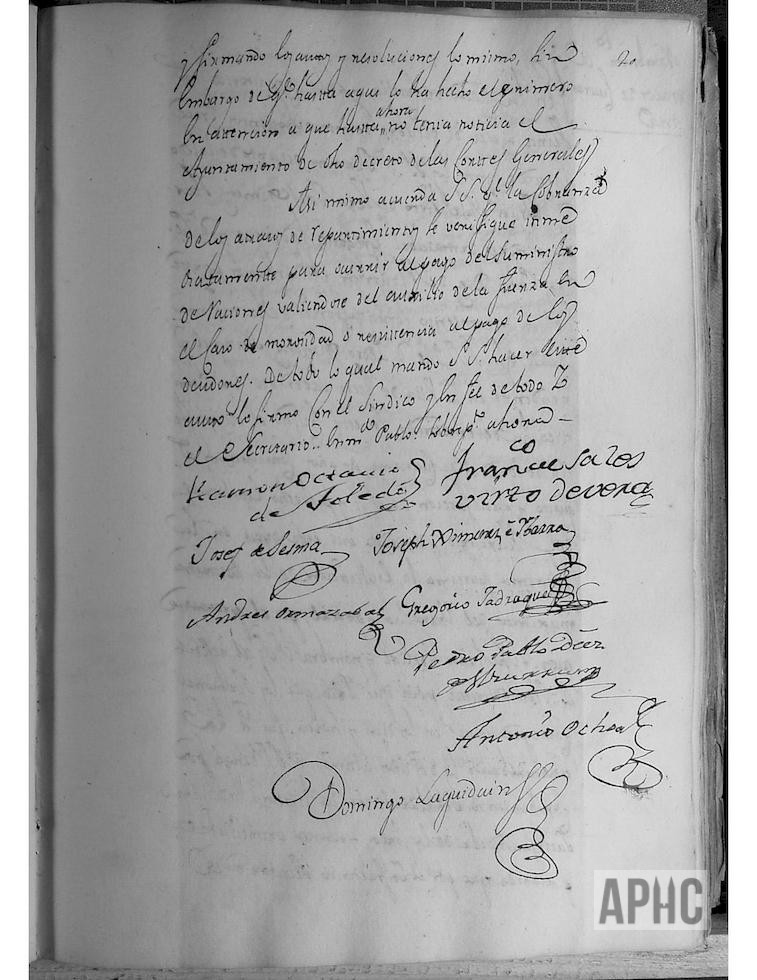 20
y firmando los autos y resoluciones lo mismo, sin
embargo de qe. hasta aqui lo ha hecho el primero
en attencion a que hasta ahora no tenia noticia el
Ayuntamiento de dho decreto de las Cortes Generales
Asi mismo acuerda S.S.ª la Cobranza
de los atrasos de repartimientos se verifique inme
diatamente para ocurrir al pago del suministro
de Raciones valiendose del auxilio de la fuerza en
el Caso de morosidad o resistencia al pago de los
deudores. De todo lo qual mando S.S. hacer este
auto lo firmo Con el Sindico y en fee de todo Yo
el Secretario. Pablo. ahora
Ramon Octavio
de Toledo
Franco. Sales
virto de vera
Josef de Sesma
Joseph Ximenez e Ybarra
Andres Ormazabal
Gregorio Jadraque
Pedro Pablo
Antonio Ochoa
Domingo Laguidain
APHC